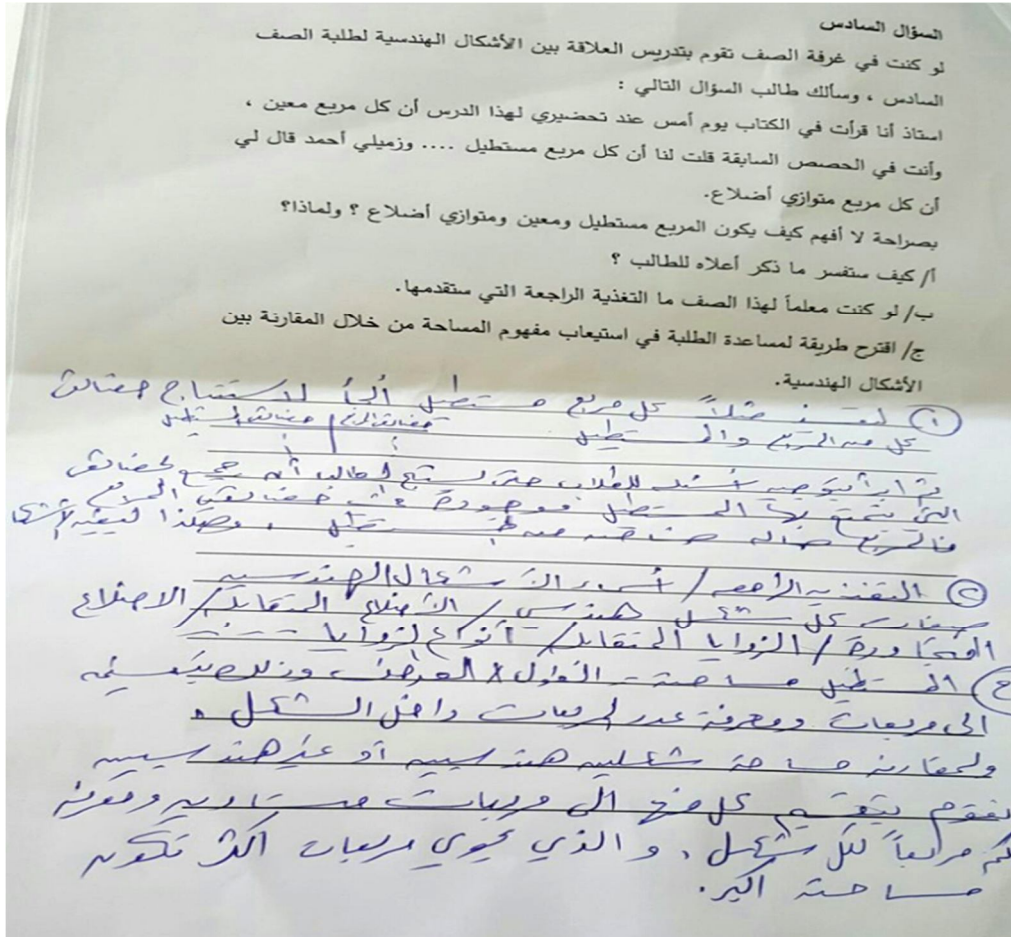 السؤال السادس
لو كنت في غرفة الصف تقوم بتدريس العلاقة بين الأشكال الهندسية لطلبة الصف
السادس ، وسألك طالب السؤال التالي :
استاذ أنا قرأت في الكتاب يوم أمس عند تحضيري لهذا الدرس أن كل مربع معين ،
وأنت في الحصص السابقة قلت لنا أن كل مربع مستطيل .... وزميلي أحمد قال لي
أن كل مربع متوازي أضلاع.
بصراحة لا أفهم كيف يكون المربع مستطيل ومعين ومتوازي أضلاع ؟ ولماذا؟
أ/ كيف ستفسر ما ذكر أعلاه للطالب ؟
ب/ لو كنت معلماً لهذا الصف ما التغذية الراجعة التي ستقدمها.
ج/ اقترح طريقة لمساعدة الطلبة في استيعاب مفهوم المساحة من خلال المقارنة بين
الأشكال الهندسية.
مثلاً كل مربع مستطيل ألجأ لاستنتاج خصائق
كل من المربع والمستطيل خصائق المربع خصائق المستطيل
ثم أبدأ بتوجيه أسئلة للطلاب حتى يستنتج الطالب أن جميع الخصائق
التي يتمتع بها المستطيل موجودة في خصائق المربع
فالمربع حالة خاصة من المستطيل . وهكذا لبقية الأشكال
التغذية الراجعة / أسماء الأشكال الهندسية
كل شكل هندسي / الأضلاع المتقابلة / الاضلاع
المتجاورة / الزوايا المتقابلة / أنواع الزوايا ....
ج) المستطيل مساحته = الطول × العرض وذلك بتقسيمه
الى مربعات ومعرفة عدد المربعات داخل الشكل .
ولمقارنة مساحة شكلين هندسيين أو غير هندسيين
نقوم بتقسيم كل منهم الى مربعات متساوية ومعرفة
كم مربعاً لكل شكل ، والذي يحوي مربعات اكثر تكون
مساحته اكبر .